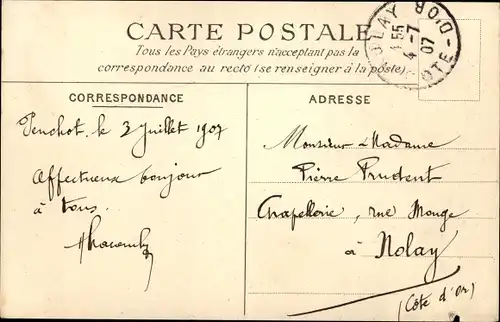 CARTE POSTALE
Tous les Pays étrangers n'acceptent pas la
correspondance au recto (se renseigner à la poste)
NOLAY COTE-D'OR
4-7
07
CORRESPONDANCE
Penchot, le 2 Juillet 1907
Affectueux bonjour
à tous.
ADRESSE
Monsieur & Madame
Pierre Prudent
Chapellerie, rue Monge
à Nolay
(Côte d'Or)